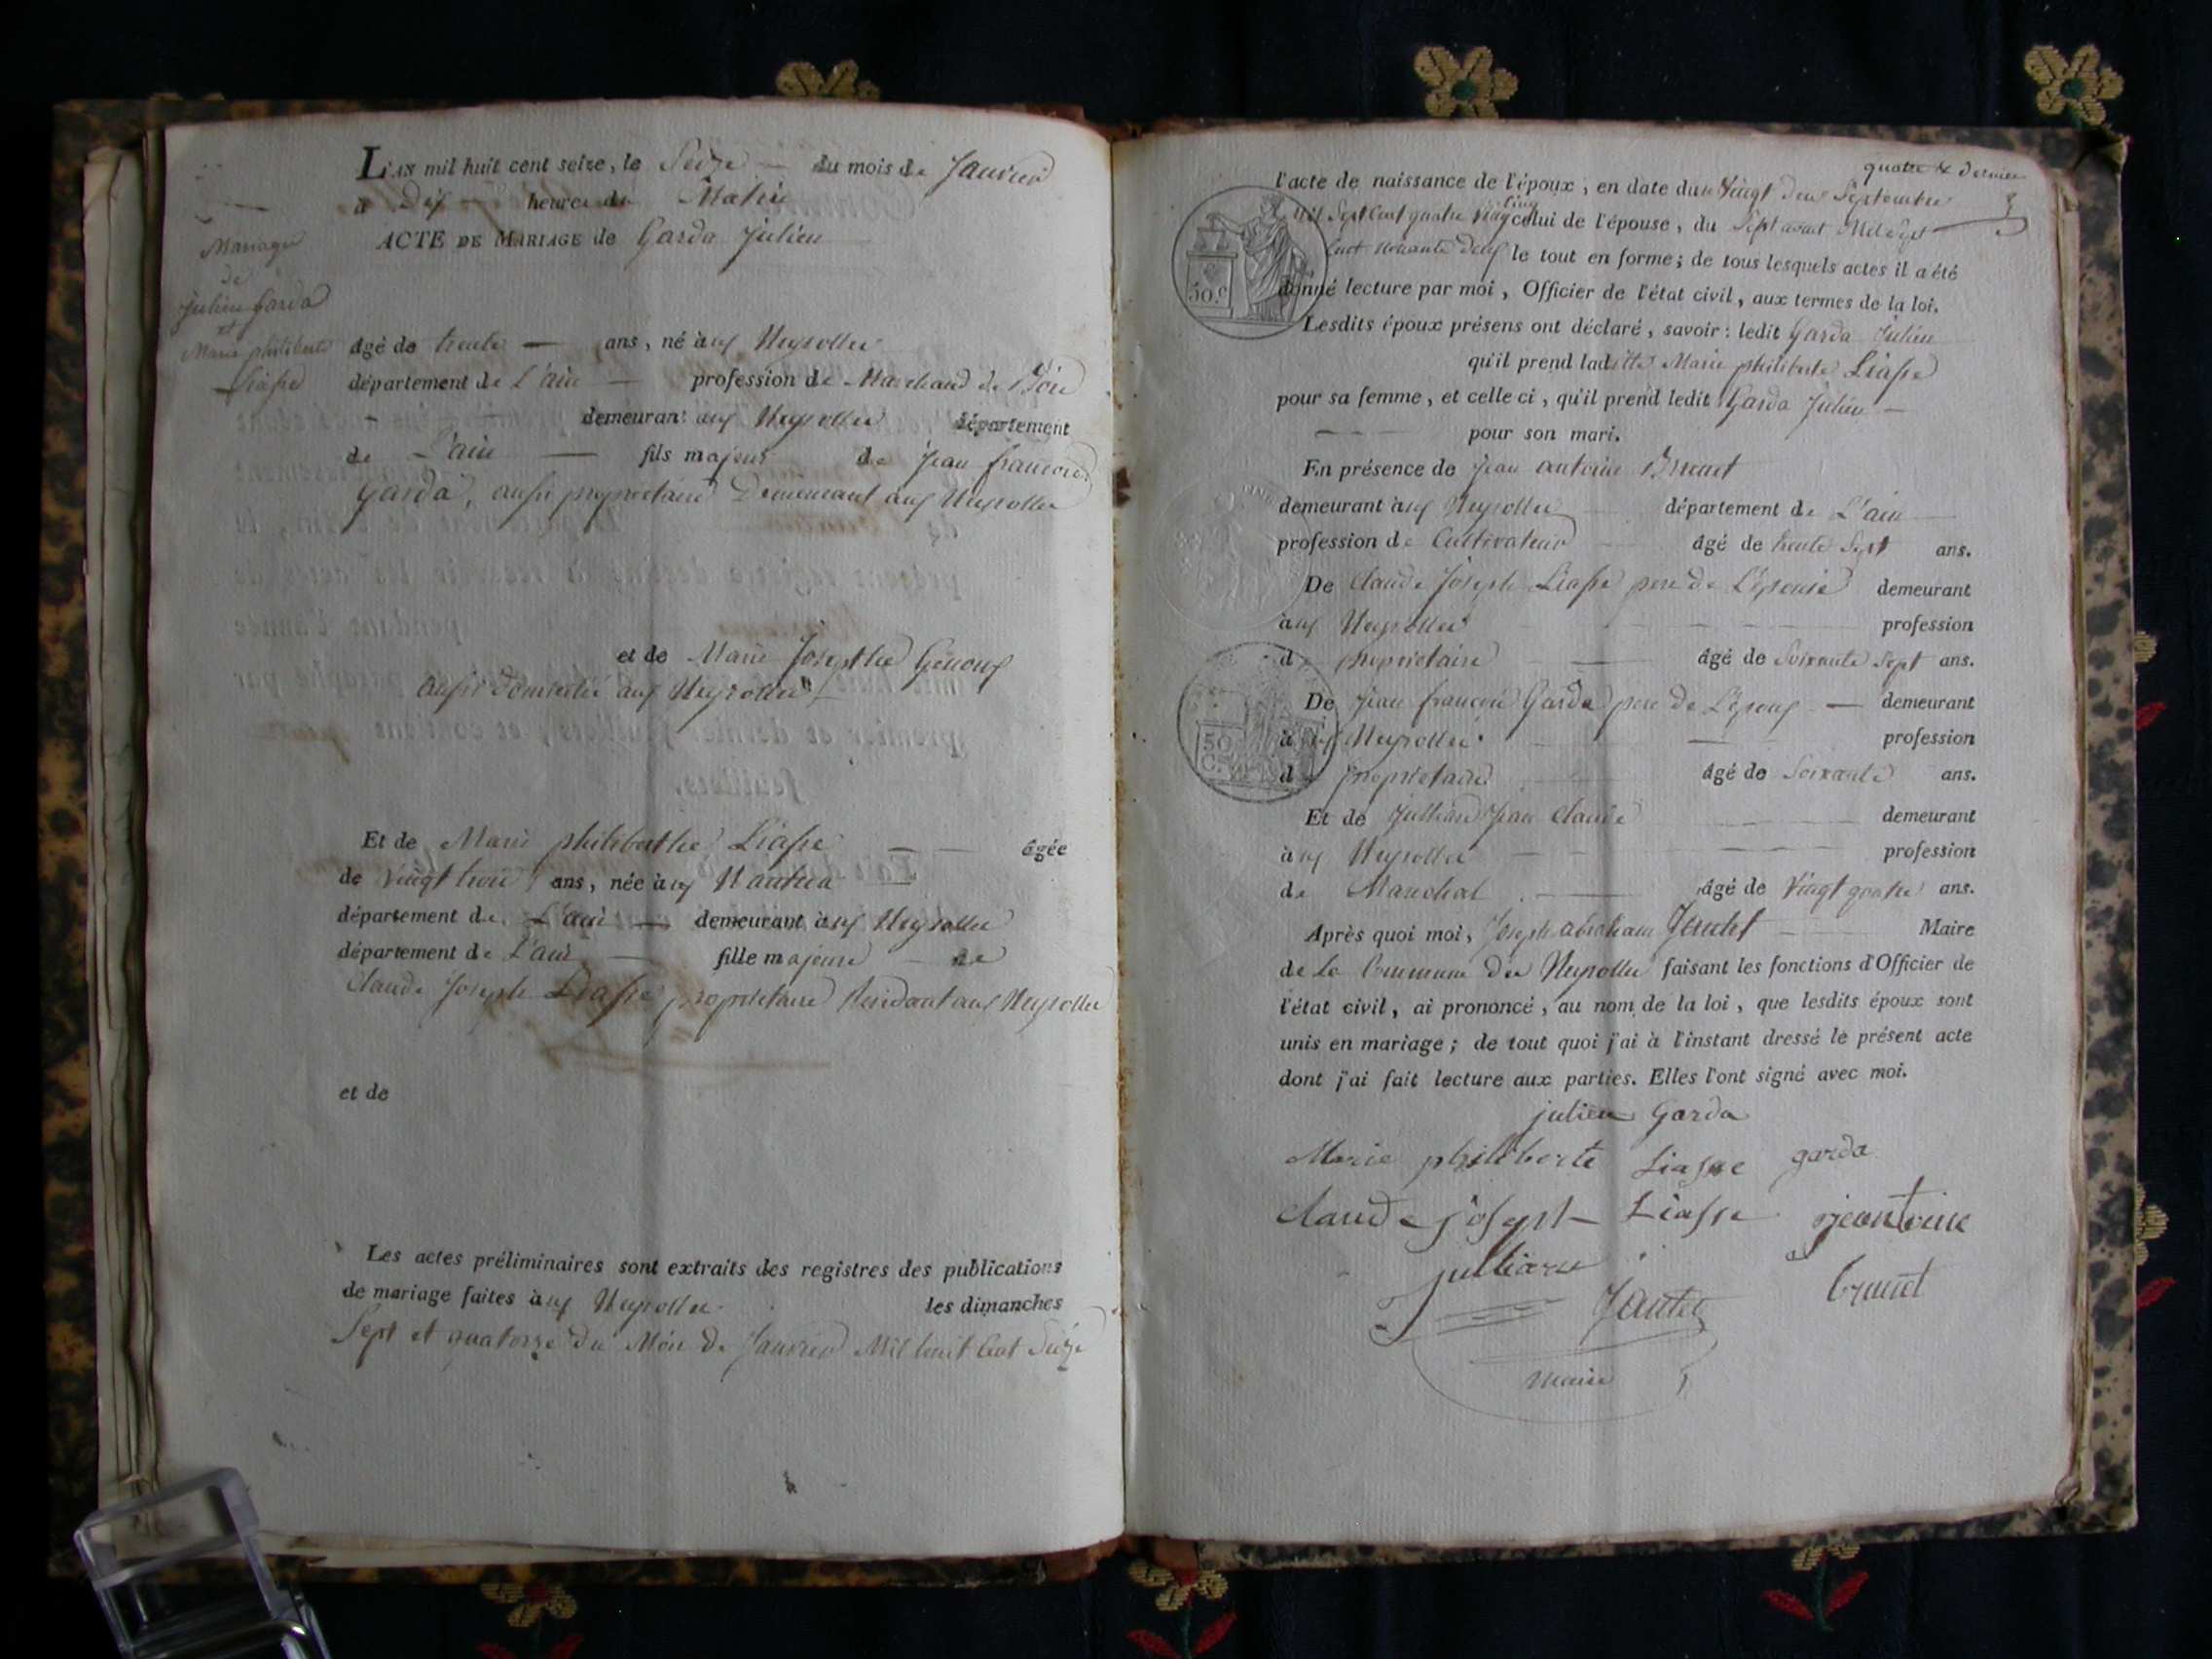 L'AN mil huit cent seize, le Seize du mois de Janvier
à Dix heures du Matin
ACTE DE MARIAGE de Garda Julien
Mariage
de
Julien Garda
et
Marie philiberte
Liasse
âgé de trente ans, né aux Neyrolles
département de L'ain profession de Marchand de Bois
demeurant aux Neyrolles département
de L'ain fils majeur de Jean françois
Garda, aussi propriétaire Demeurant aux Neyrolles
et de Marie Josepthe Genoux
aussi domiciliée aux Neyrolles
Et de Marie philiberthe Liasse âgée
de vingt trois ans, née à Nantua
département de L'ain demeurant aux Neyrolles
département de L'ain fille majeure de
Claude Joseph Liasse propriétaire Residant aux Neyrolles
et de
Les actes préliminaires sont extraits des registres des publications
de mariage faites aux Neyrolles les dimanches
Sept et quatorze du Mois de Janvier Mil huit Cent Seize
quatre & dernier
l'acte de naissance de l'époux, en date du Vingt deux Septembre
Mil Sept Cent quatre Vingt Cinq celui de l'épouse, du Sept aout Mil Sept
Cent nonante deux le tout en forme; de tous lesquels actes il a été
donné lecture par moi, Officier de l'état civil, aux termes de la loi.
Lesdits époux présens ont déclaré, savoir: ledit Garda Julien
qu'il prend laditte Marie philiberte Liasse
pour sa femme, et celle ci, qu'il prend ledit Garda Julien
pour son mari.
En présence de Jean antoine Brunet
demeurant aux Neyrolles département de L'ain
profession de Cultivateur âgé de trente Sept ans.
De Claude Joseph Liasse pere de L'épouse demeurant
aux Neyrolles profession
de propriétaire âgé de Soixante Sept ans.
De Jean françois Garda pere de L'époux demeurant
aux Neyrolles profession
de propriétaire âgé de Soixante ans.
Et de Julliard Jean Claude demeurant
aux Neyrolles profession
de Marechal âgé de Vingt quatre ans.
Après quoi moi, Joseph abraham Jantet Maire
de La Commune des Neyrolles faisant les fonctions d'Officier de
l'état civil, ai prononcé, au nom de la loi, que lesdits époux sont
unis en mariage; de tout quoi j'ai à l'instant dressé le présent acte
dont j'ai fait lecture aux parties. Elles l'ont signé avec moi.
julien Garda
Marie philiberte Liasse garda
claude joseph Liasse jeantoine
julliard brunet
Jantet
maire
50.c
50
C.